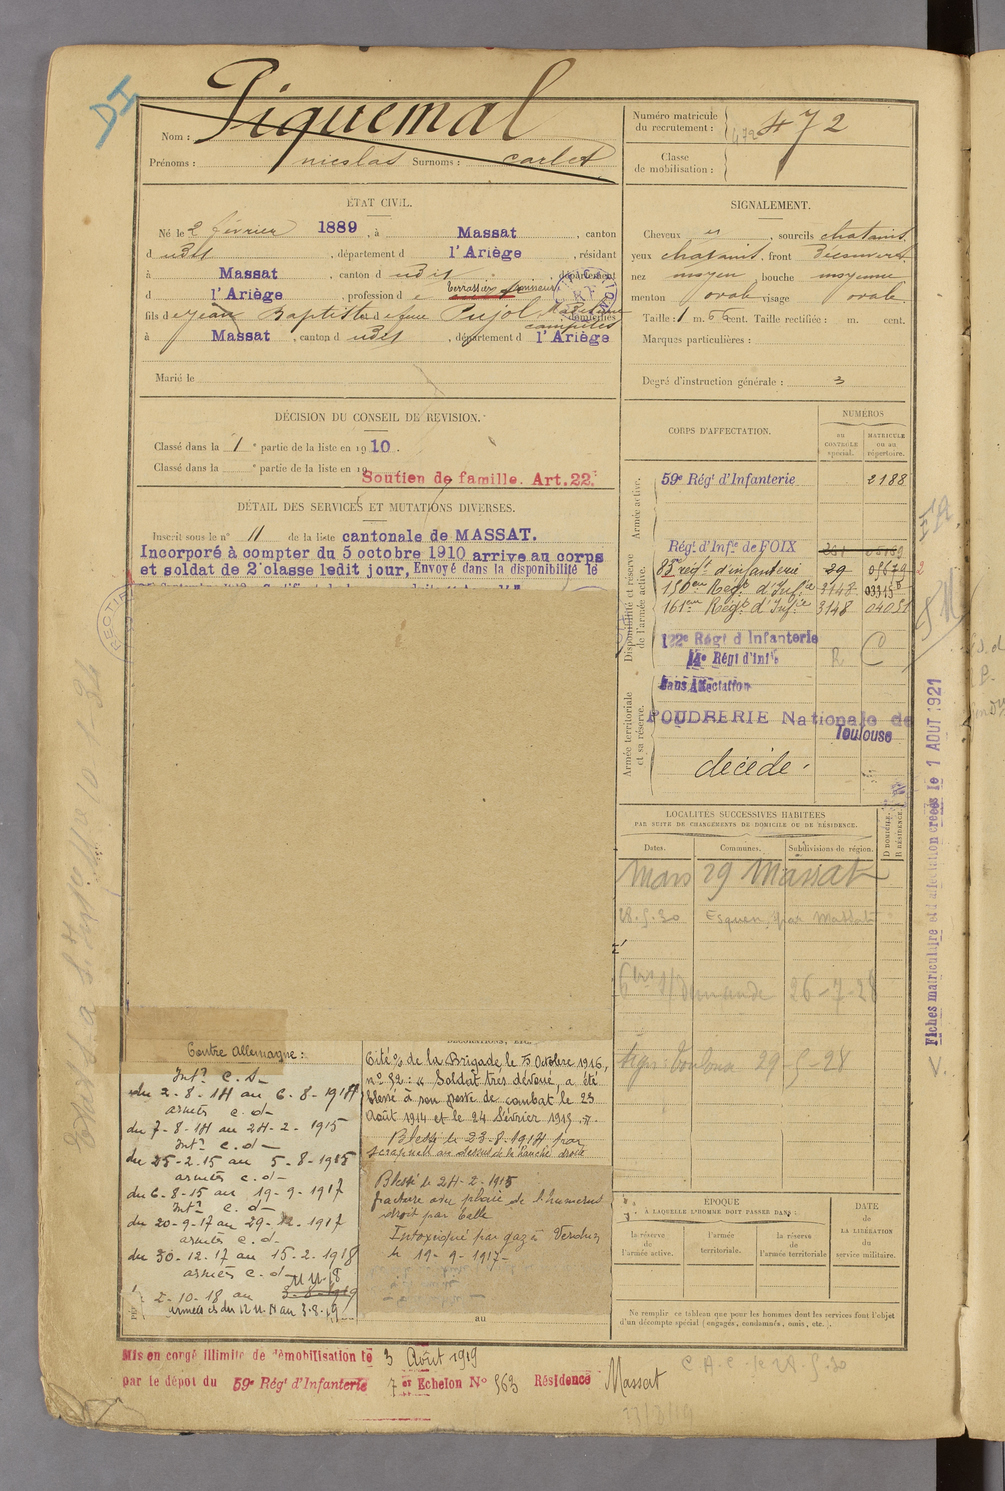 DI
Nom : Piquemal
Prénoms : nicolas Surnoms : carlet
Numéro matricule
du recrutement : 472
472
Classe
de mobilisation :
ÉTAT CIVIL.
Né le 2 février 1889, à Massat, canton
d udit, département d l'Ariège, résidant
à Massat, canton d udit, département
d l'Ariège, profession d e terrassier mineur
fils d e Jean Baptiste et d e feue Pujol domiciliés
à Massat, canton d udit, département d l'Ariège
Marié le
SIGNALEMENT.
Cheveux , sourcils chatains
yeux chatains, front Découvert
nez moyen, bouche moyenne
menton ovale visage ovale.
Taille : 1 m. 66 cent. Taille rectifiée : m. cent.
Marques particulières :
Degré d'instruction générale : 3
DÉCISION DU CONSEIL DE REVISION.
Classé dans la 1e partie de la liste en 1910.
Classé dans la e partie de la liste en 19
Soutien de famille. Art. 22.
DÉTAIL DES SERVICES ET MUTATIONS DIVERSES.
Inscrit sous le n° 11 de la liste cantonale de MASSAT.
Incorporé à compter du 5 octobre 1910 arrive au corps
et soldat de 2e classe ledit jour, Envoyé dans la disponibilité le
CORPS D'AFFECTATION.
NUMÉROS
au CONTRÔLE spécial.
MATRICULE ou au répertoire.
Armée active.
59e Régt d'Infanterie 2188
Disponibilité et réserve de l'armée active.
Régt d'Infie de FOIX
83e régt d'infanterie 29 05679
150em Regt d'Infie 3148 03315
161em Regt d'Infie 3148 04051
122e Régt d Infanterie
14e Régt d'Infie R
Sans Affectation
Armée territoriale et sa réserve.
POUDRERIE Nationale de
Toulouse
décédé.
LOCALITÉS SUCCESSIVES HABITÉES
PAR SUITE DE CHANGEMENTS DE DOMICILE OU DE RÉSIDENCE.
Dates. Communes. Subdivisions de région. D DOMICILE. R RÉSIDENCE.
Mars 29 Massat
28.5.30 Esquen, par Massat
26-7-28
Toulouse 29-5-28
Fiches matriculaire et d'affectation créées le 1 AOUT 1921
V.
Contre Allemagne :
Intr C. S
du 2-8-14 au 6-8-1914
armées c. d
du 7-8-14 au 24-2-1915
Intr c. d
du 25-2-15 au 5-8-1915
armées c. d
du 6-8-15 au 19-9-1917
Intr c. d
du 20-9-17 au 29-12-1917
armées c. d
du 30-12-17 au 15-2-1918
armées c. d
11.11.18
2-10-18 au 3-8-1919
armées cd du 12.11.18 au 3.8.19
DÉCORATIONS, ETC.
Cité % de la Brigade le 5 Octobre 1916,
n° 52 : « Soldat très dévoué, a été
blessé à son poste de combat le 23
Août 1914 et le 24 Février 1915. »
Blessé le 23-8-1914 par
scrapnell au dessus de la hanche droite
Blessé le 24-2-1915
fracture avec plaie de l'humerus
droit par balle
Intoxiqué par gaz à Verdun
le 19-9-1917
au
ÉPOQUE
À LAQUELLE L'HOMME DOIT PASSER DANS :
la réserve de l'armée active.
l'armée territoriale.
la réserve de l'armée territoriale
DATE de LA LIBÉRATION du service militaire.
Ne remplir ce tableau que pour les hommes dont les services font l'objet
d'un décompte spécial (engagés, condamnés, omis, etc.).
Mis en congé illimité de démobilisation le 3 Août 1919
par le dépôt du 59e Régt d'Infanterie 7er Echelon N° 563 Résidence Massat